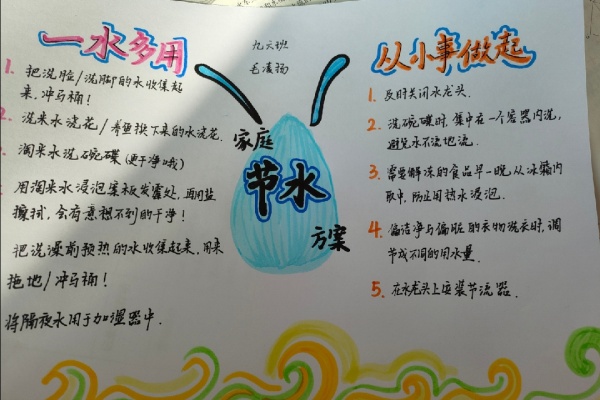 一水多用
1. 把洗脸/洗脚的水收集起
来,冲马桶!
2. 洗来水浇花/养鱼换下来的水浇花.
淘米水洗碗碟(更干净哦)
用淘米水浸泡案板发霉处,再用盐
擦拭,会有意想不到的干净!
把洗澡前预热的水收集起来,用来
拖地/冲马桶!
将隔夜水用于加湿器中.
九六班
毛凌扬
家庭
节水
方案
从小事做起
1. 及时关闭水龙头.
2. 洗碗碟时,集中在一个容器内洗,
避免水不流地流.
3. 需要解冻的食品早一晚从冰箱内
取出,防止用热水浸泡.
4. 偏洁净与偏脏的衣物洗衣时,调
节成不同的用水量.
5. 在水龙头上安装节流器.